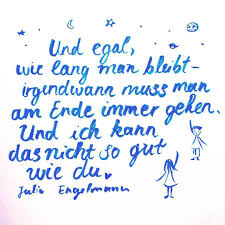 Und egal,
wie lang man bleibt-
irgendwann muss man
am Ende immer gehen.
Und ich kann
das nicht so gut
wie du.
Julia Engelmann